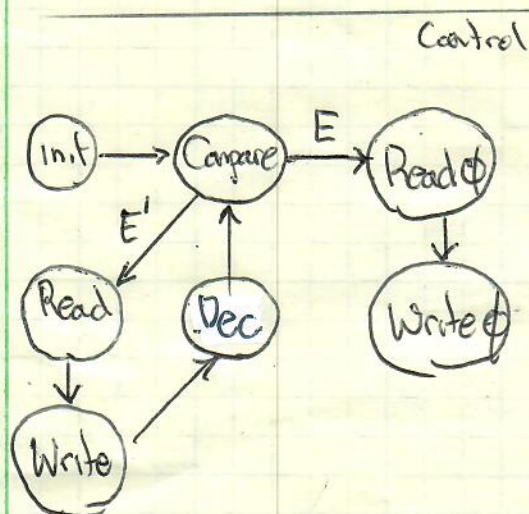 Control
Init
Compare
E
Readϕ
E'
Read
Dec
Writeϕ
Write